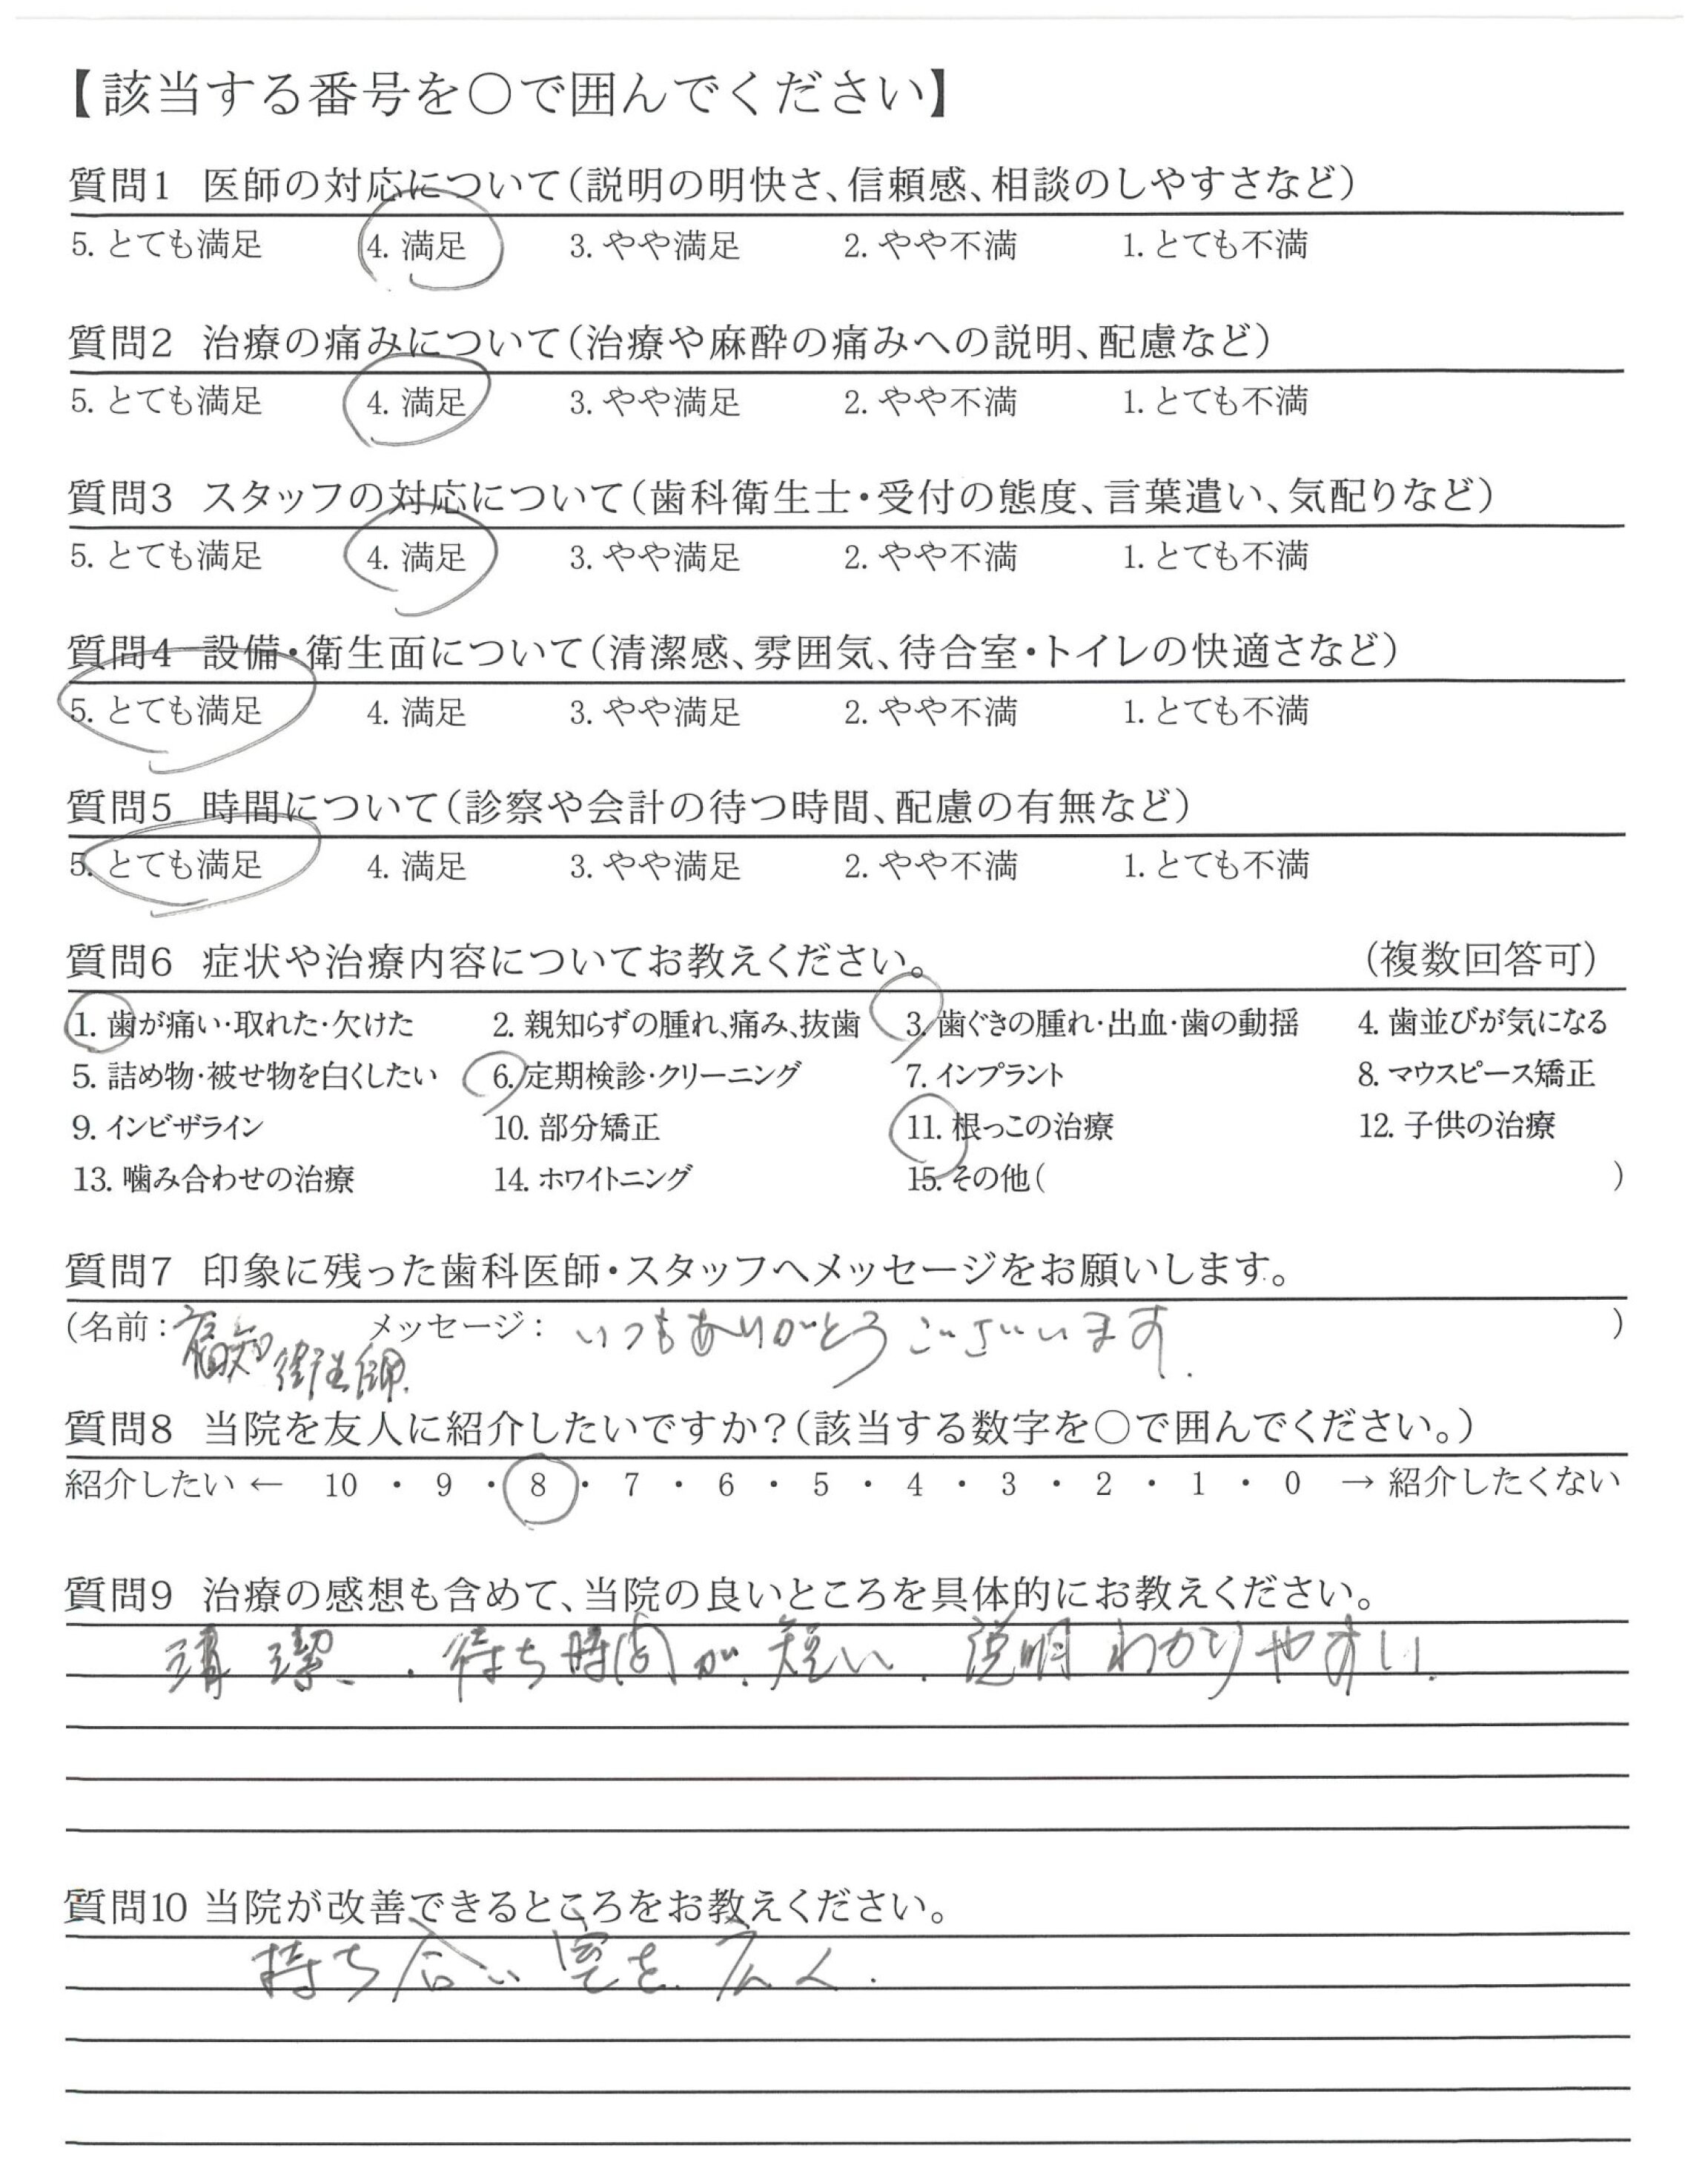 【該当する番号を○で囲んでください】
質問1 医師の対応について(説明の明快さ、信頼感、相談のしやすさなど)
5. とても満足 4. 満足 3. やや満足 2. やや不満 1. とても不満
質問2 治療の痛みについて(治療や麻酔の痛みへの説明、配慮など)
5. とても満足 4. 満足 3. やや満足 2. やや不満 1. とても不満
質問3 スタッフの対応について(歯科衛生士・受付の態度、言葉遣い、気配りなど)
5. とても満足 4. 満足 3. やや満足 2. やや不満 1. とても不満
質問4 設備・衛生面について(清潔感、雰囲気、待合室・トイレの快適さなど)
5. とても満足 4. 満足 3. やや満足 2. やや不満 1. とても不満
質問5 時間について(診察や会計の待つ時間、配慮の有無など)
5. とても満足 4. 満足 3. やや満足 2. やや不満 1. とても不満
質問6 症状や治療内容についてお教えください。 (複数回答可)
1. 歯が痛い・取れた・欠けた 2. 親知らずの腫れ、痛み、抜歯 3. 歯ぐきの腫れ・出血・歯の動揺 4. 歯並びが気になる
5. 詰め物・被せ物を白くしたい 6. 定期検診・クリーニング 7. インプラント 8. マウスピース矯正
9. インビザライン 10. 部分矯正 11. 根っこの治療 12. 子供の治療
13. 噛み合わせの治療 14. ホワイトニング 15. その他( )
質問7 印象に残った歯科医師・スタッフへメッセージをお願いします。
(名前: メッセージ: いつもありがとうございます. )
衛生師.
質問8 当院を友人に紹介したいですか?(該当する数字を○で囲んでください。)
紹介したい ← 10 ・ 9 ・ 8 ・ 7 ・ 6 ・ 5 ・ 4 ・ 3 ・ 2 ・ 1 ・ 0 → 紹介したくない
質問9 治療の感想も含めて、当院の良いところを具体的にお教えください。
清潔、. 待ち時間が短い. 説明わかりやすい.
質問10 当院が改善できるところをお教えください。
持ち合い室を広く.